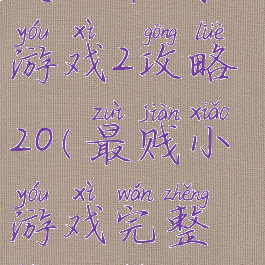 yóu xì gōng lüè
游戏2攻略
zuì jiàn xiǎo
20(最贱小
yóu xì wán zhěng
游戏完整